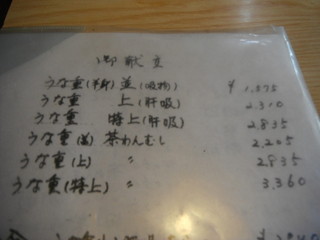 御献立
うな重(並)並(吸物) ¥1,575
うな重 上(肝吸) 2,310
うな重 特上(肝吸) 2,835
うな重(並)茶わんむし 2,205
うな重(上) 〃 2,835
うな重(特上) 〃 3,360